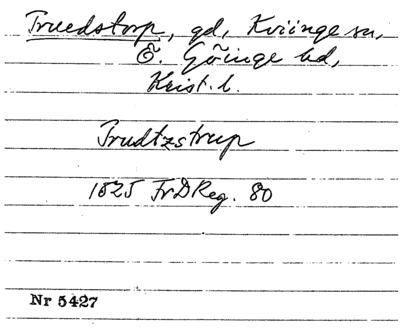 Truedstorp, gd, Kviinge sn,
Ö. Göinge hd,
Krist. l.
Trudtzstrup
1525 FrDReg. 80
Nr 5427